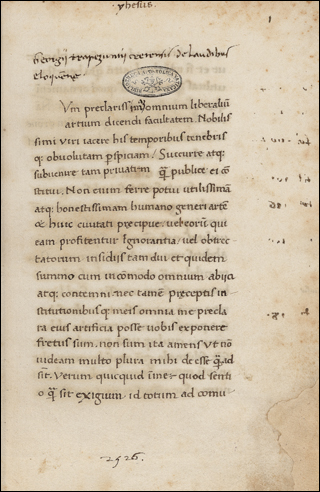 yhesus.
Georgij trapezuntij cretensis de laudibus
eloquentie
Um preclarissimam omnium liberaliũ
artium dicendi facultatem Nobilis
simi viri iacere his temporibus tenebris
q: obvolutam pspiciam / Succurre atq:
subvenire tam privatim q̃ publice ei cõ
stitui. Non enim ferre potui utilissimã
atq: honestissimam humano generi artẽ
&c huic civitati precipue vel eorũ qui
eam profitentur Ignorantia / vel obtrec
tatorum insidijs tam diu et quidem
summo cum incõmodo omnium abijci
atq: contemni. nec tamẽ preceptis in
stitutionibus q: meis omnia me precla
ra eius artificia posse vobis exponere
fretus sum. non sum ita amens vt nõ
videam multo plura mihi de esse q̃ ad
sit. Verum quicquid quod senti
o q̃ sit exigium id totum ad comu
2526.